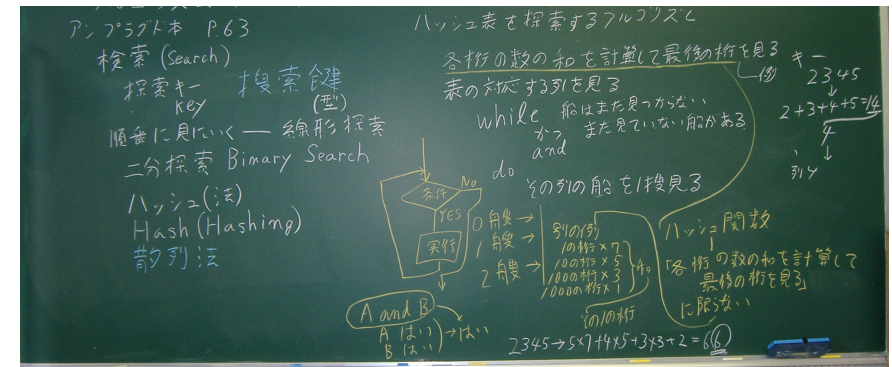 アンプラグド本 P.63
検索(Search)
探索キー 搜索鍵
key (型)
順番に見にいく — 線形探索
二分探索 Binary Search
ハッシュ(法)
Hash(Hashing)
散列法
ハッシュ表を探索するアルゴリズム
各桁の数の和を計算して最後の桁を見る
表の対応する列を見る
while 船はまだ見つからない
かつ また見ていない船がある
and
do その列の船を1艘見る
(例) キー
2345
↓
2+3+4+5=14
4
↓
列4
条件 No
YES
実行
A and B
A はい
B はい → はい
0艘 →
1艘 →
2艘 →
別の例
1の桁×7
10の桁×5
100の桁×3
1000の桁×1
その1の桁
ハッシュ関数
「各桁の数の和を計算して
最後の桁を見る」
に限らない
2345→5×7+4×5+3×3+2=66